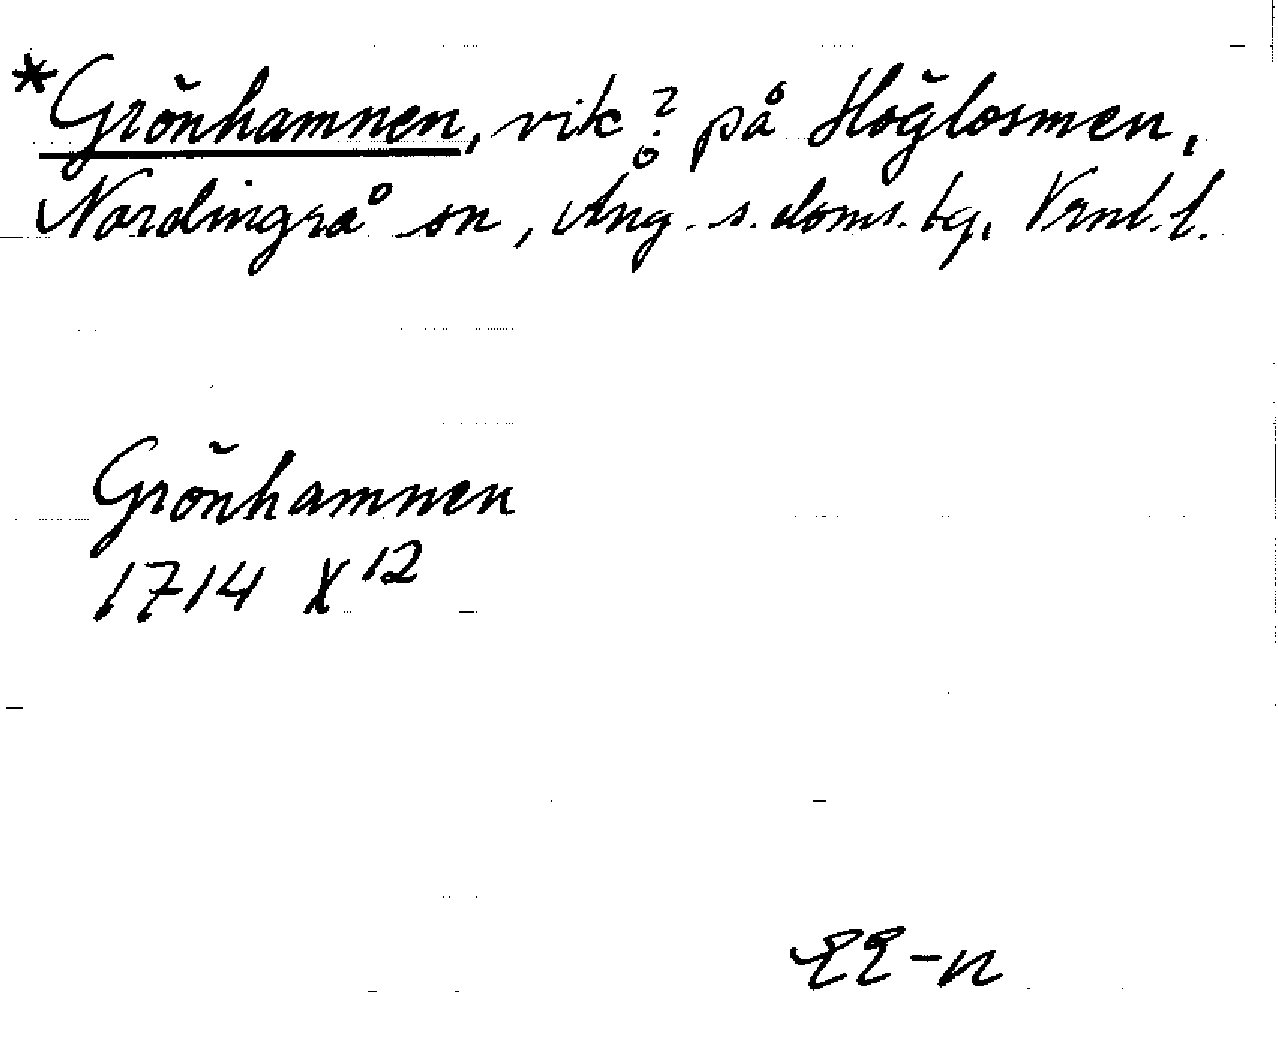 *Grönhamnen, vik? på Höglosmen,
Nordingrå sn, Ång. s. doms. tg, Vrnl. l.
Grönhamnen
1714 X 12
EE-n